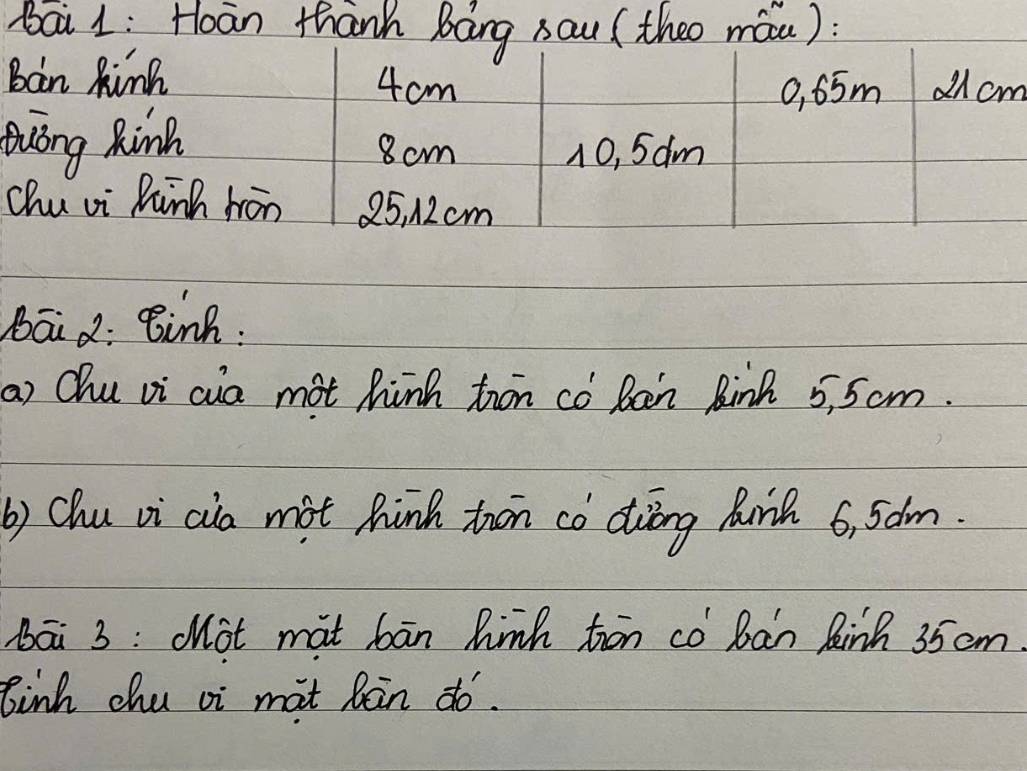 Bài 1: Hoàn thành bảng sau (theo mẫu):
Bán kính 4cm 0,65m 21cm
Đường kính 8cm 10,5dm
Chu vi hình tròn 25,12cm
Bài 2: Tính:
a) Chu vi của một hình tròn có bán kính 5,5cm.
b) Chu vi của một hình tròn có đường kính 6,5dm.
Bài 3: Một mặt bàn hình tròn có bán kính 35cm.
Tính chu vi mặt bàn đó.